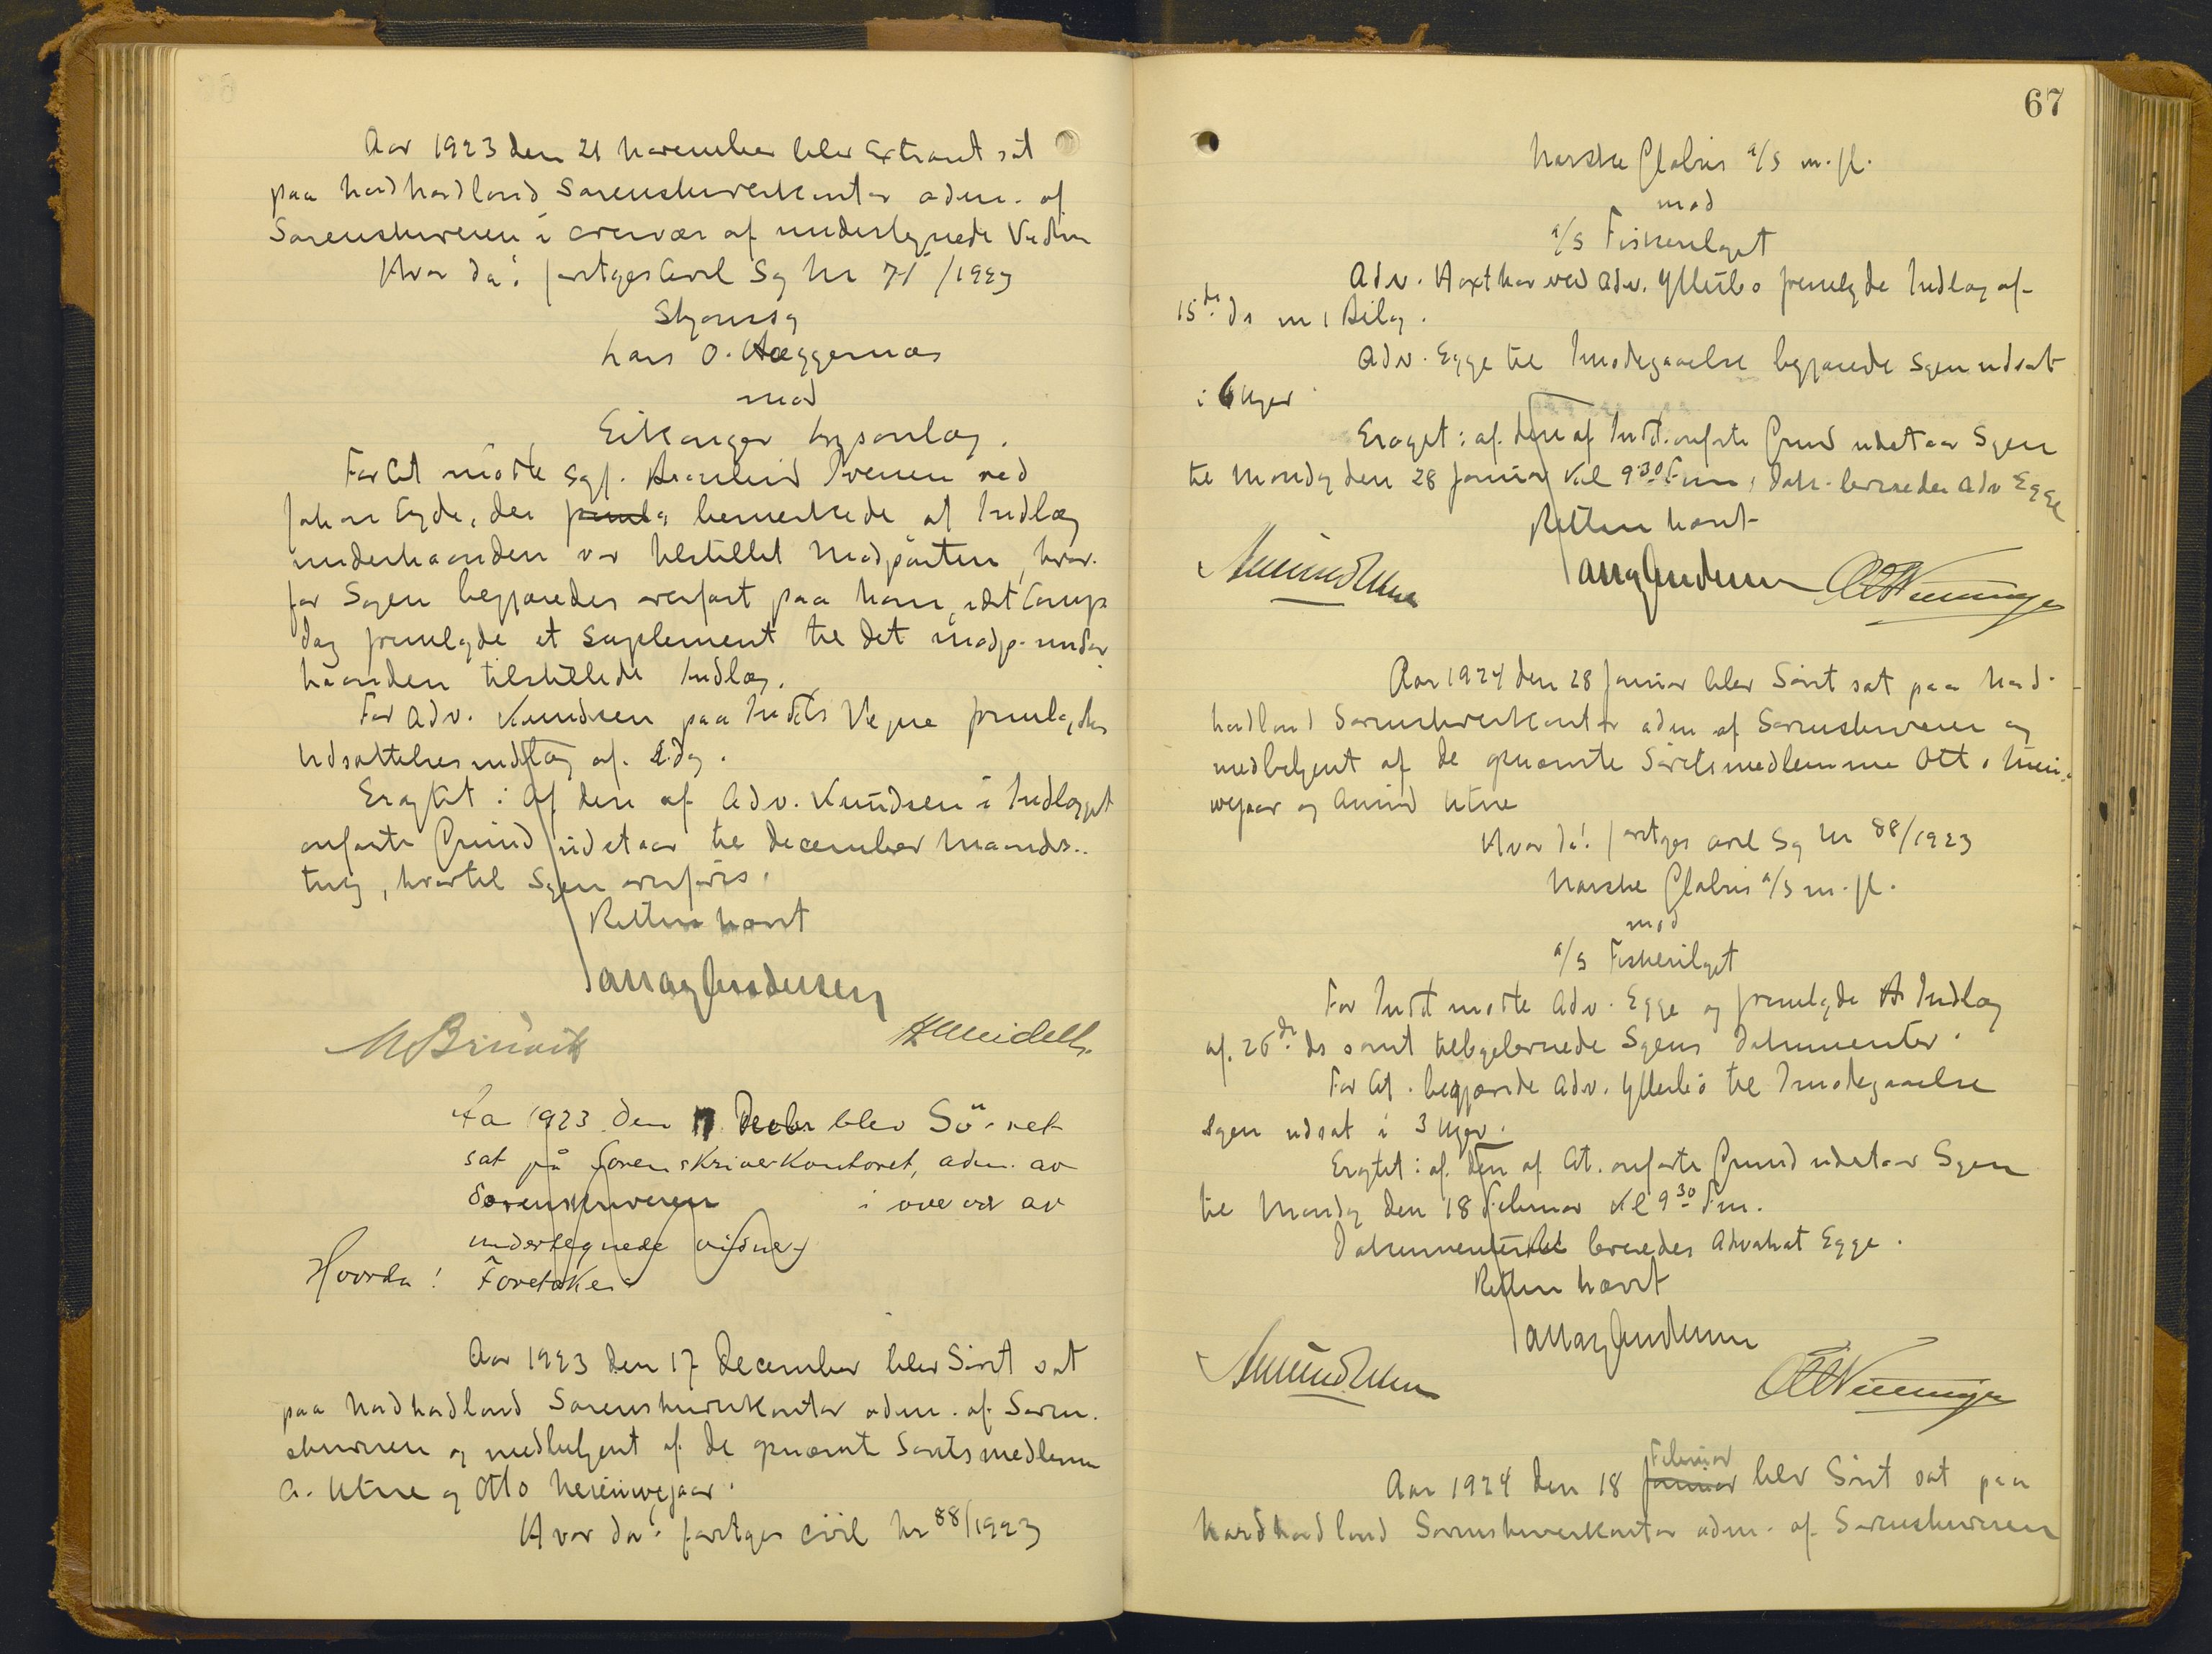 Aar 1923 den 21 November blev Extraret sat
paa Nordhordland Sorenskriverkontor adm. af
Sorenskriveren i overvær af undertegnede Vidner
Hvor da! foretoges Civil Sag Nr 71/1923
Skjønssag
Lars O. Hæggernæs
mod
Eikanger Lysanlæg.
For Cit mötte Sagf. Iversen ved
Johan Eyde, der bemerkede at Indlæg
underhaanden var tilstillet Modparten, hvor-
for Sagen begjæredes overført paa ham
dag fremlagde et Suplement til det modp. under
haanden tilstillede Indlæg.
For Adv. Knudsen paa Indcts Vegne fremlagdes
Udsættelsesindlæg af. D.dag.
Eragtet: Af den af Adv. Knudsen i Indlægget
anførte Grund udstaar til December Maaneds-
ting, hvortil Sagen overføres.
Retten hævet
M Brúvik
H Meidell
Aar 1923 den 17 Decbr blev Sö-ret
sat på Sorenskriverkontoret, adm. av
Sorenskriveren i overvær av
undertegnede vidner
Hvorda! Foretokes
Aar 1923 den 17 December blev Söret sat
paa Nordhordland Sorenskriverkontor adm. af Soren-
skriveren og medbetjent af de opnævnte Söretsmedlemme
A. Utne og Otto
Hvor da! foretoges Civil Nr 88/1923
67
Norske Globus A/S m. fl.
mod
A/S Fiskerilaget
Adv. ved Adv. Ytterbö fremlagde Indlæg af
15de ds m 1 Bilag.
Adv. Egge til Imødegaaelse begjærede Sagen udsat
i 6 Uger
Eragtet: af den af Indct. anførte Grund udstaar Sagen
til Mandag den 28 Januar Kl 9.30 Fm, Dok. leveredes Adv Egge
Retten hævet
Aar 1924 den 28 Januar blev Söret sat paa Nord-
hordland Sorenskriverkontor adm af Sorenskriveren og
medbetjent af de opnævnte Söretsmedlemme Otto
og Amund Utne
Hvor da! foretoges Civil Sag Nr 88/1923
Norske Globus A/S m. fl.
mod
A/S Fiskerilaget
For Indct mötte Adv. Egge og fremlagde Indlæg
af. 26de ds samt tilbageleverede Sagens Dokumenter.
For Cit. begjærede Adv. Ytterbö til Imødegaaelse
Sagen udsat i 3 Uger.
Eragtet: af. den af Cit. anførte Grund udstaar Sagen
til Mandag den 18 Februar Kl 9 30 Fm.
Dokumenterne leveredes Advokat Egge.
Retten hævet
Aar 1924 den 18 Januar Februar blev Söret sat paa
Nordhordland Sorenskriverkontor adm. af Sorenskriveren